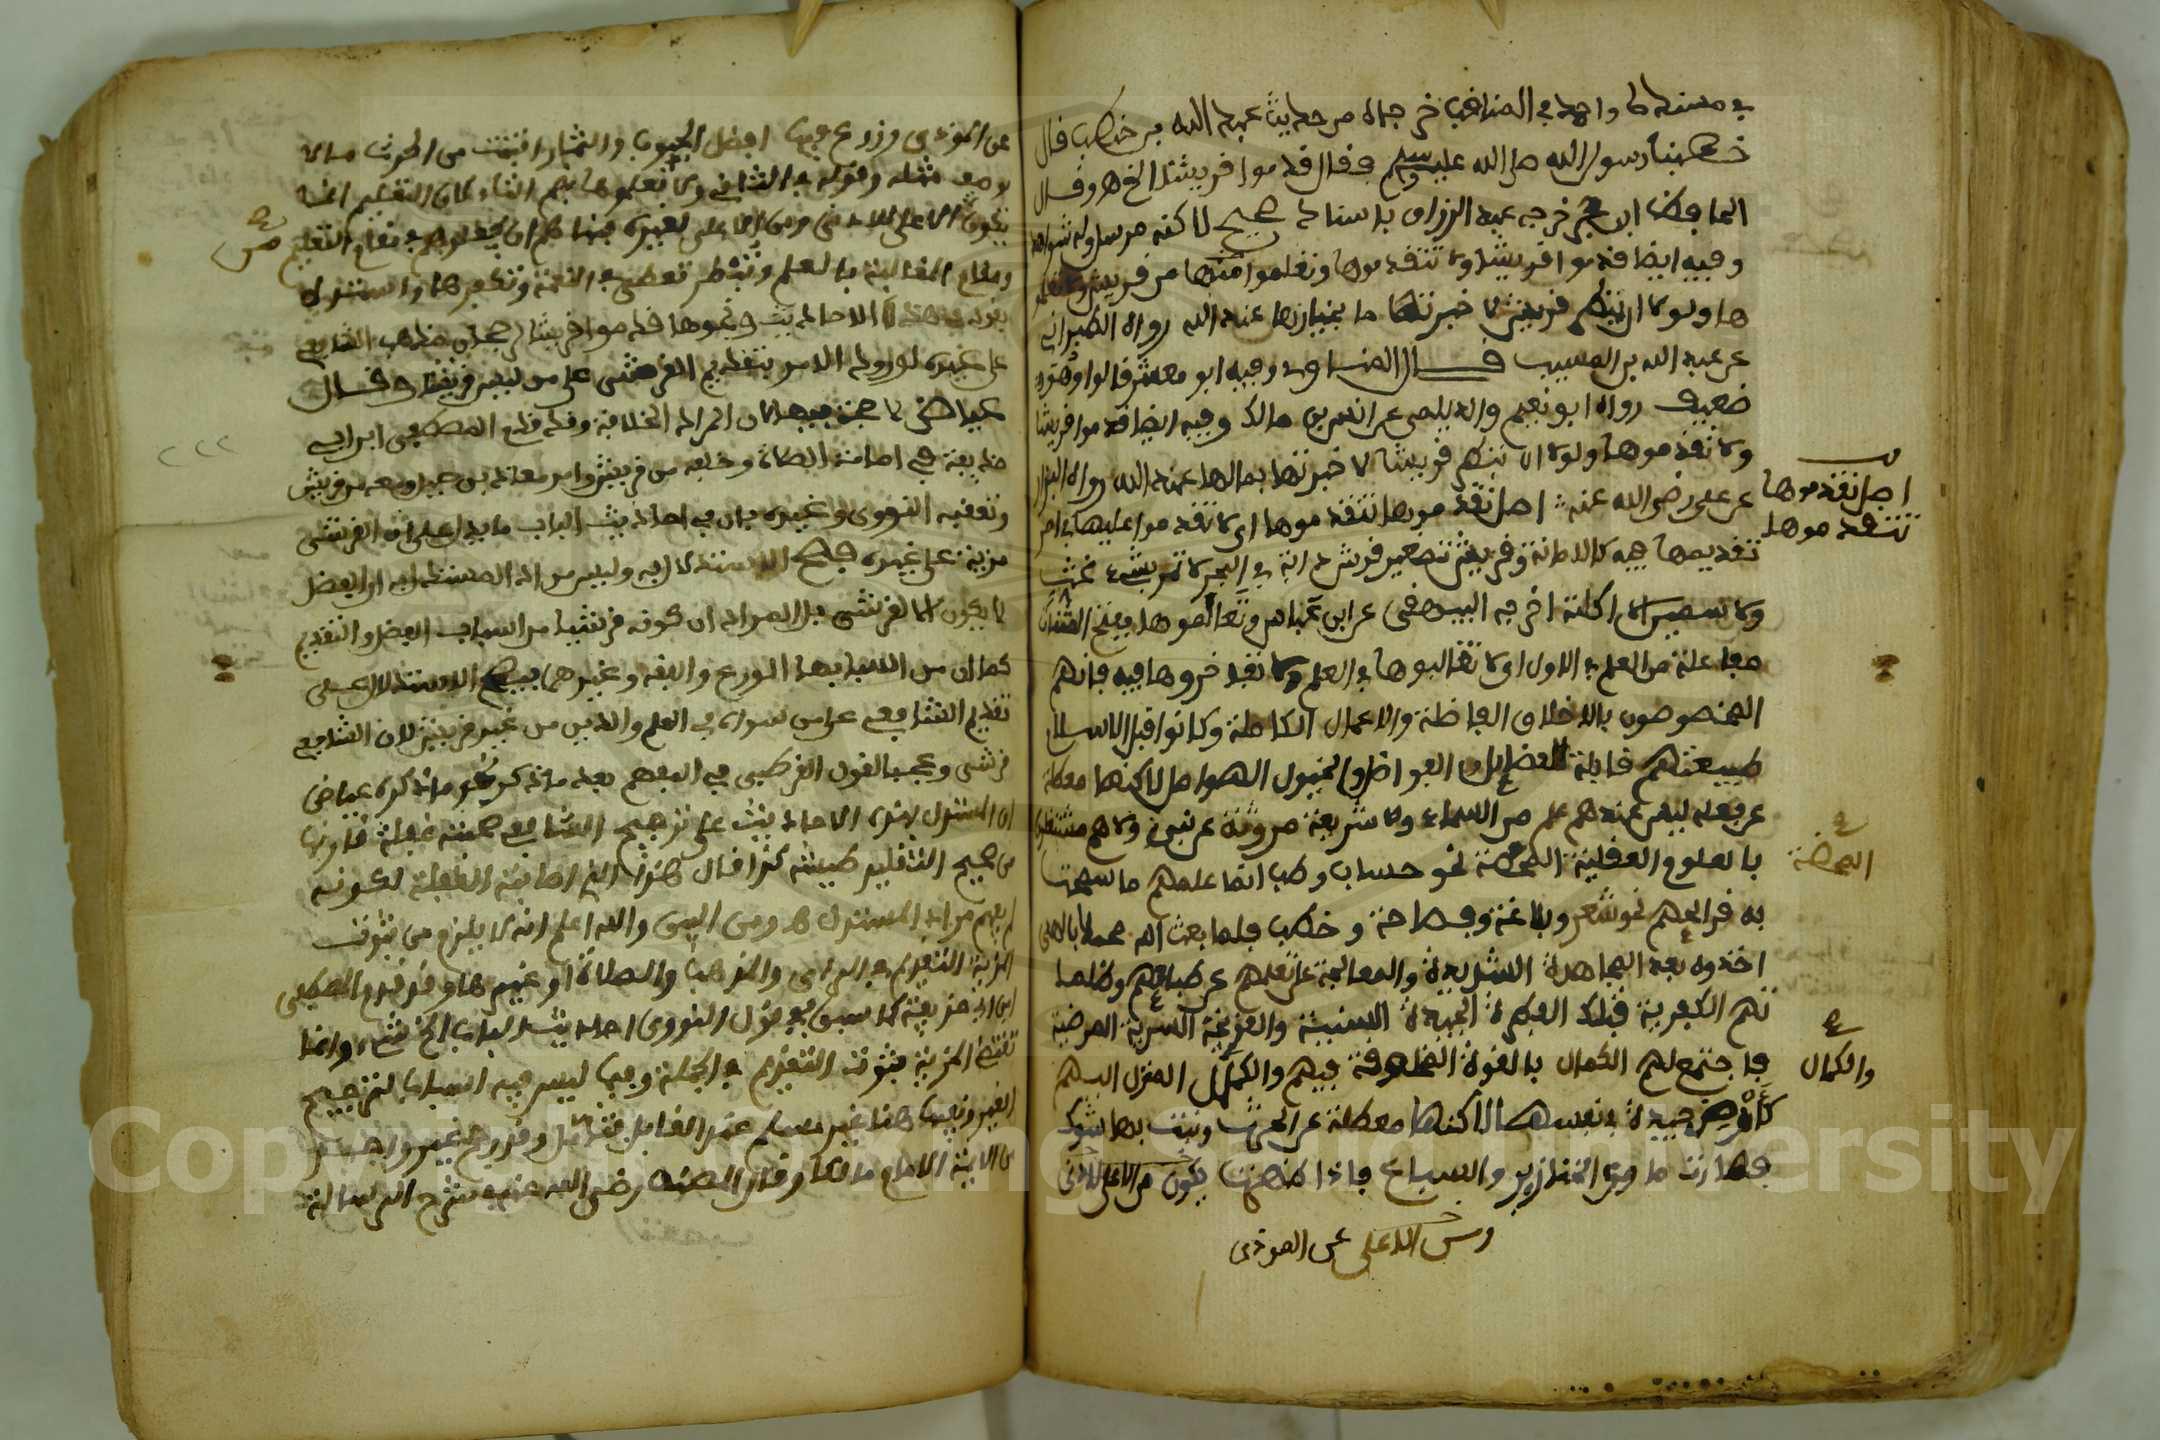 في مسنده واحمد في المناقب خرجاه من حديث عبد الله بن حنطب قال
خطبنا رسول الله صلى الله عليه وسلم فقال قدموا قريشا الخ هـ وقال
الحافظ ابن حجر خرجه عبد الرزاق باسناد صحيح لاكنه مرسل وله شواهد
وفيه ايضا قدموا قريشا ولا تتقدموها وتعلموا منها من قريش ولا تعلمو
ها ولولا ان تبطر قريش لاخبرتها ما لخيارها عند الله رواه الطبراني
عن عبد الله بن المسيب قال المناوي وفيه ابو معشر قالوا وهو
ضعيف رواه ابو نعيم والديلمي عن انس بن مالك وفيه ايضا قدموا قريشا
ولا تقدموها ولولا ان تبطر قريشا لاخبرتها بمالها عند الله رواه البزار
عن علي رضي الله عنه اصل تقدموها تتقدموها اي لا تقدموا عليها في امر
اصل تقدموها
تتقدموها
تقديمها فيه كالامانة وقريش تصغير قرش دابة في البحر لا تمر بشيء غث
ولا سمين الا اكلته اخرجه البيهقي عن ابن عباس وتعالموها بفتح
مفاعلة من العلم في الاول اي لا تغالبوها في العلم ولا تفاخروها فيه فانهم
المخصوصون بالاخلاق الفاضلة والاعمال الكاملة وكانوا قبل الاسلام
طبيعتهم قابلة للفضايل والفواضل والخيول الهوامل لاكنها معطلة
عن فعله ليس عندهم علم من السماء ولا شريعة موروثة عن نبي ولا هم مشتغلون
بالعلوم العقلية المحضة نحو حساب وطب انما علمهم ما سمحت
المحضة
به قرائحهم نحو شعر وبلاغة وفصاحة وخطب فلما بعث الله محمدا بالهدى
اخذوه بعد المجاهدة الشديدة والمعالجة على نقلهم عن طباعهم وظلما
تهم الكفرية فبتلك الفطرة الجيدة السنية والقريحة السرية المرضية
فاجتمع لهم الكمال بالقوة المخلوقة فيهم والكمال المنزل اليهم
والكمال
كارض جيدة في نفسها لاكنها معطلة عن الحرث ونبت بها شوك
فصارت ماوى الخنازير والسباع فاذا طهرت يكون من الاعلى للادنى
ومن الاعلى عن الموذى
عن الموذى وزرع فيها افضل الحبوب والثمار انبتت من الحرث مالا
يوصف مثله وقوله في الثاني ولا تعلموها بضم التاء لان التعليم انما
يكون من الاعلى للادنى ومن الاعلى لغيره فنهاهم ان يجعلوهم في مقام التعليم
ومقام المغالبة بالعلم وتبطر تطغى في النعمة وتكفرها واستدل
بهذه الاحاديث ونحوها قدموا قريشا رجحان مذهب الشافعي
على غيره لورود الامر بتقديم القرشي على من ليس قريشا وقال
عياض لا حجة فيها لان المراد الخلافة وقد قدم المصطفى ابن ابي
حذيفة في امامة الصلاة وخلفه من قريش وامر معاذ بن جبل ومعه من قريش
وتعقبه النووي وغيره بان في احاديث الباب ما يدل على ان القرشي
مزية على غيره فصح الاستدلال به وليس مراد المستدل به ان الفضل
لا يكون الا لقرشي بل المراد ان كونه قرشيا من اسباب الفضل والتقديم
كما ان من اسبابها الورع والفقه وغيرهما فصح الاستدلال على
تقديم الشافعي على من سواه في العلم والدين من غير قريش لان الشافعي
قرشي وعجب القول القرطبي في المفهم بعد ما ذكر نحو ما ذكره عياض
ان المستدل بهذه الاحاديث على ترجيح الشافعي صحبته غفلة قارنها
من صحيح التقليد طيشه كذا قال هذا الذي اصابته الغفلة لكونه
لم يفهم مراد المستدل هـ ومن البين والله اعلم انه لا يلزم من ثبوت
المزية التقديم في الراي والمذهب والصلاة او غيرها وقد قدم المصطفى
ابن ابي حذيفة كما سبق في قول النووي احاديث الباب الخ فتح وانما
تقتضي المزية ثبوت التقديم في الجملة وفيما ليس فيه اسباب لترجيح
الغير ونفيها هنا غير مسلم عند القابل فتامل وقد رجح غير واحد
من الايمة الامام مالكا وقال المصنف رضي الله عنه في شرح الرسالة